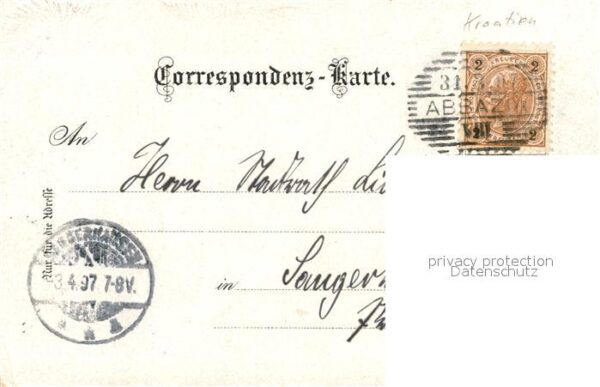 Kroatien
2 2
Correspondenz-Karte.
31
ABBAZIA
2
An
Herrn Stadtrath
Nur für die Adresse
SANGERHAUSEN
3.4.97. 7-8V.
privacy protection
Datenschutz
in Sanger